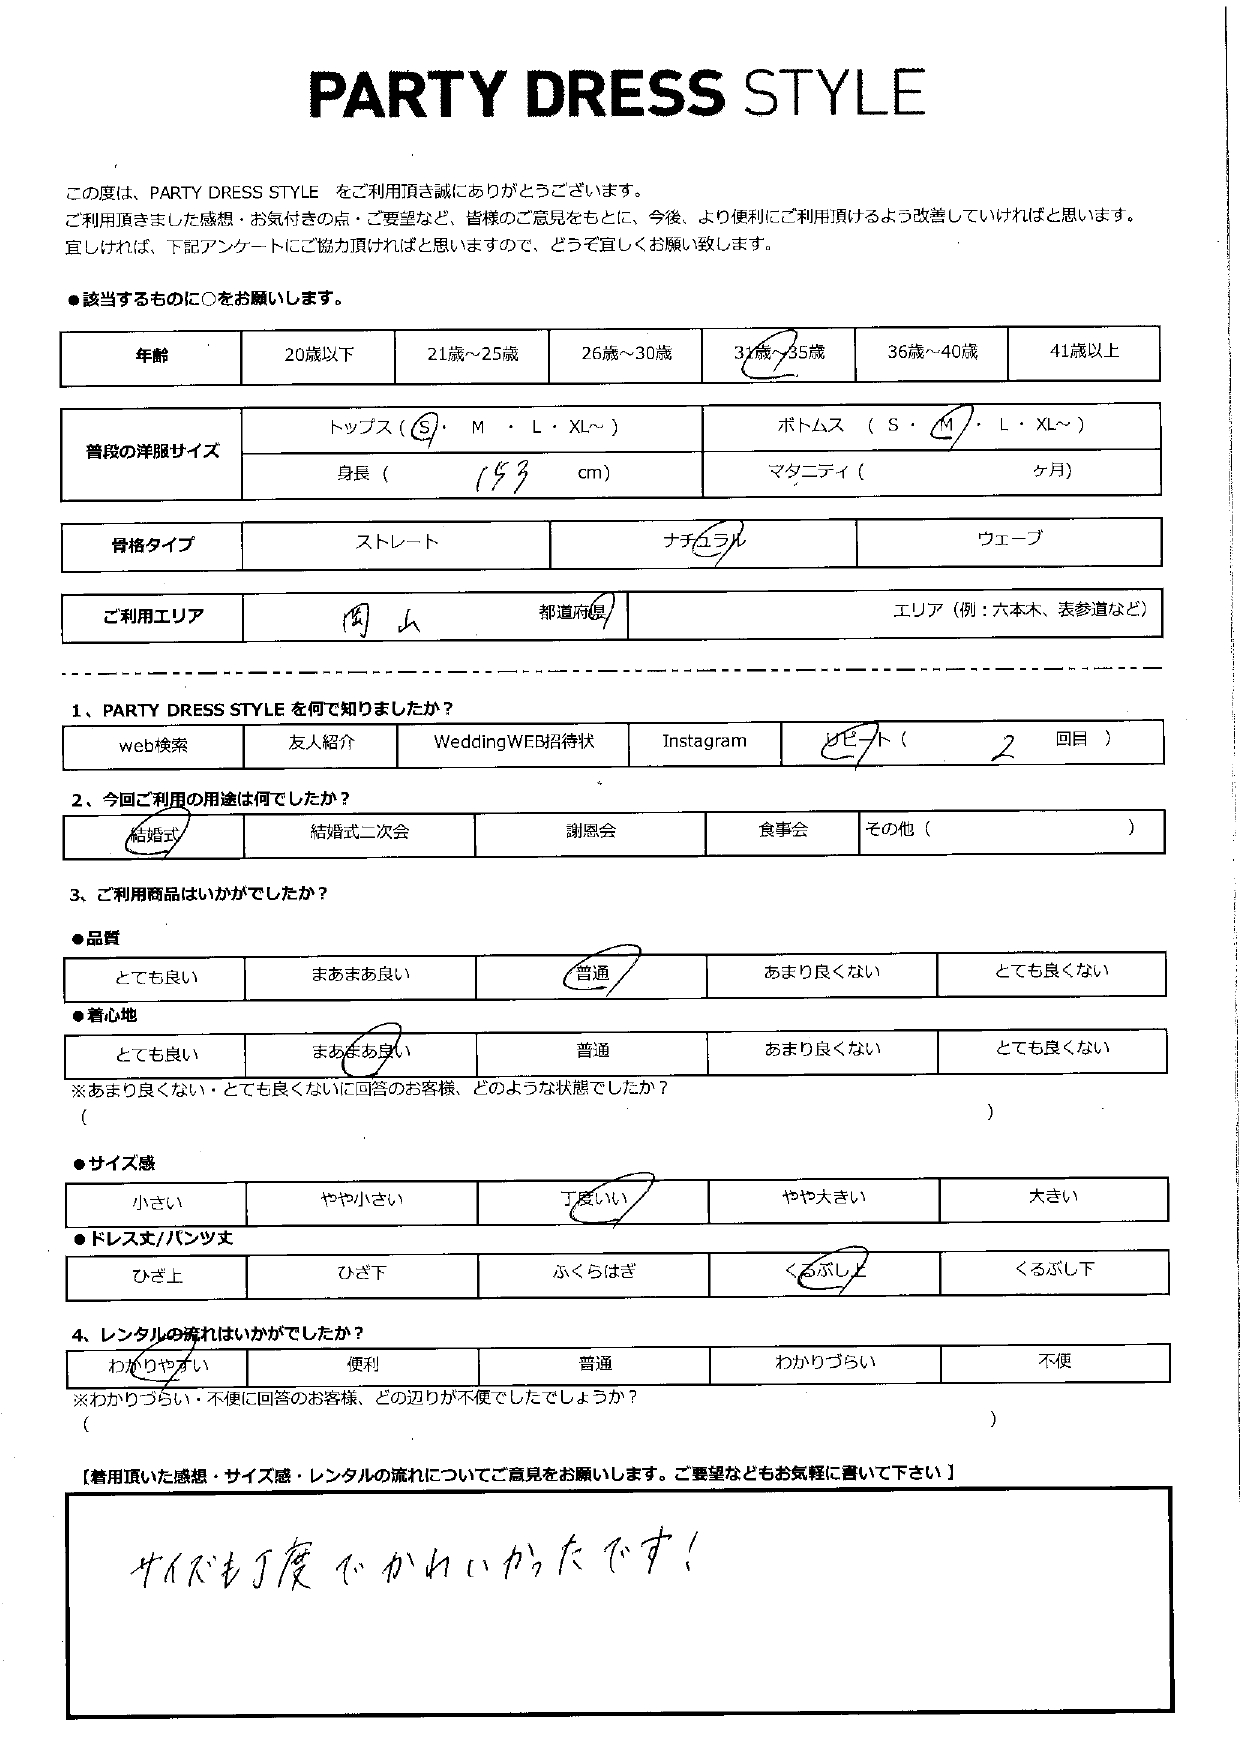 PARTY DRESS STYLE
この度は、PARTY DRESS STYLE をご利用頂き誠にありがとうございます。
ご利用頂きました感想・お気付きの点・ご要望など、皆様のご意見をもとに、今後、より便利にご利用頂けるよう改善していければと思います。
宜しければ、下記アンケートにご協力頂ければと思いますので、どうぞ宜しくお願い致します。
●該当するものに○をお願いします。
年齢 20歳以下 21歳～25歳 26歳～30歳 31歳～35歳 36歳～40歳 41歳以上
普段の洋服サイズ トップス ( S ・ M ・ L ・ XL～ ) ボトムス ( S ・ M ・ L ・ XL～ )
身長 ( 153 cm) マタニティ ( ヶ月)
骨格タイプ ストレート ナチュラル ウェーブ
ご利用エリア 岡山 都道府県 エリア（例：六本木、表参道など）
1、PARTY DRESS STYLE を何で知りましたか？
web検索 友人紹介 WeddingWEB招待状 Instagram リピート ( 2 回目 )
2、今回ご利用の用途は何でしたか？
結婚式 結婚式二次会 謝恩会 食事会 その他 ( )
3、ご利用商品はいかがでしたか？
●品質
とても良い まあまあ良い 普通 あまり良くない とても良くない
●着心地
とても良い まあまあ良い 普通 あまり良くない とても良くない
※あまり良くない・とても良くないに回答のお客様、どのような状態でしたか？
( )
●サイズ感
小さい やや小さい 丁度いい やや大きい 大きい
●ドレス丈/パンツ丈
ひざ上 ひざ下 ふくらはぎ くるぶし上 くるぶし下
4、レンタルの流れはいかがでしたか？
わかりやすい 便利 普通 わかりづらい 不便
※わかりづらい・不便に回答のお客様、どの辺りが不便でしたでしょうか？
( )
【着用頂いた感想・サイズ感・レンタルの流れについてご意見をお願いします。ご要望などもお気軽に書いて下さい 】
サイズも丁度でかわいかったです！